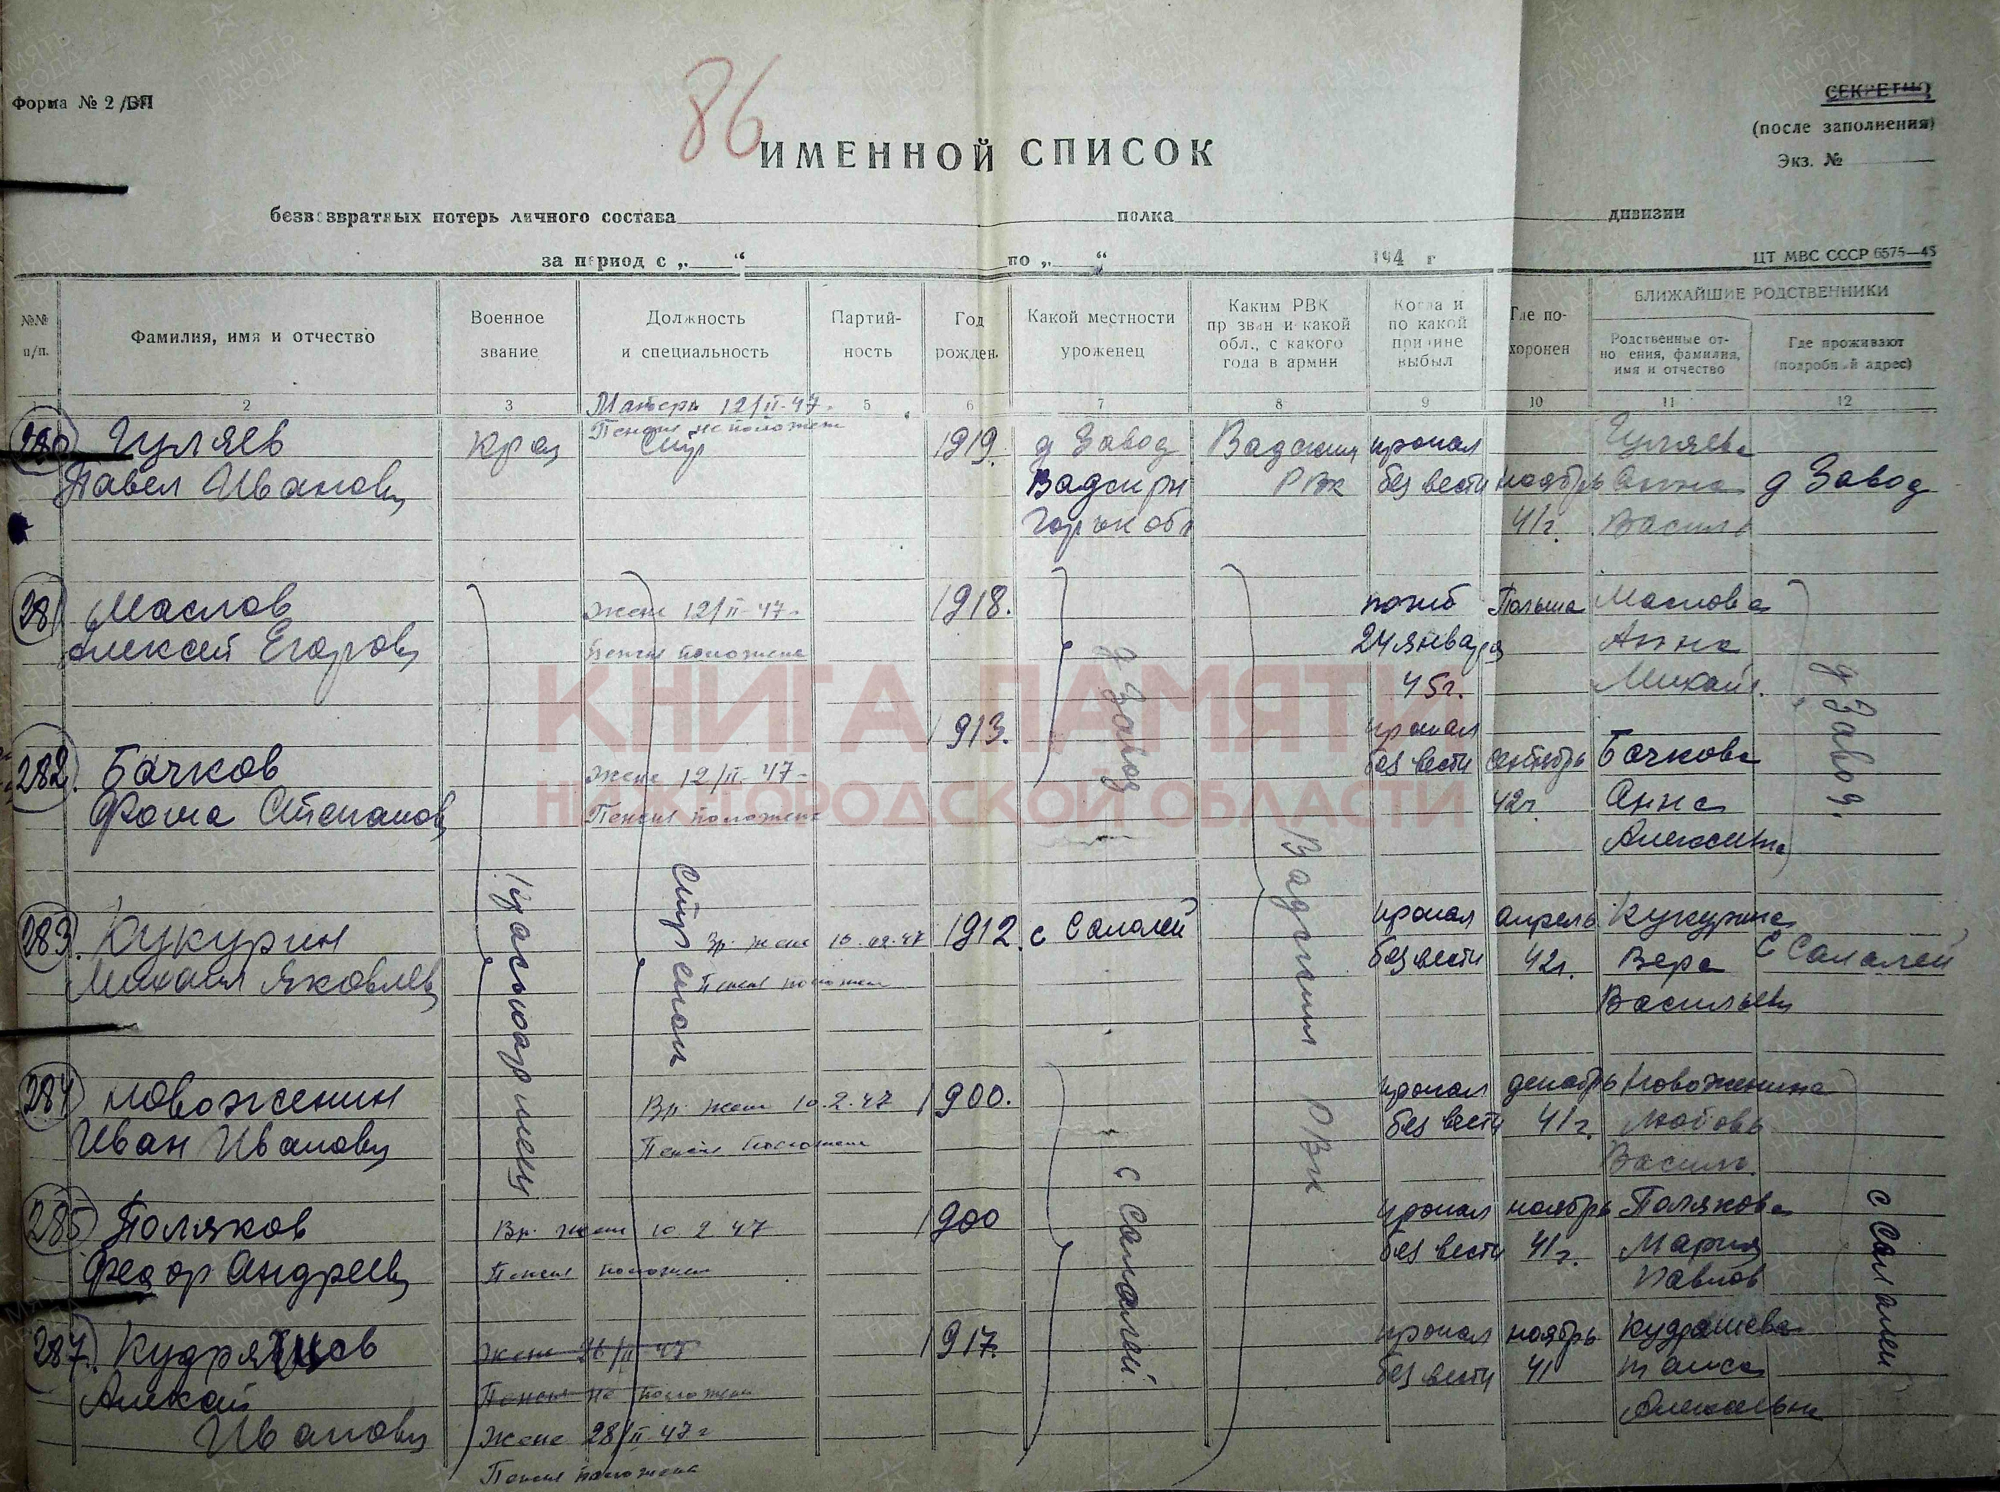 86
Форма № 2/БП
СЕКРЕТНО
(после заполнения)
Экз. №
ИМЕННОЙ СПИСОК
безвозвратных потерь личного состава полка дивизии
за период с „ “ по „ “ 194 г
ЦТ МВС СССР 6575—45
№№ п/п.
Фамилия, имя и отчество
Военное звание
Должность и специальность
Партий-
ность
Год рожден.
Какой местности уроженец
Каким РВК
призван и какой
обл., с какого
года в армии
Когда и
по какой
причине
выбыл
Где по-
хоронен
БЛИЖАЙШИЕ РОДСТВЕННИКИ
Родственные от-
ношения, фамилия,
имя и отчество
Где проживают
(подробный адрес)
2 3 5 6 7 8 9 10 11 12
Матери 12/II-47г
Пенсия не положена
280 Гуляев кр-ц стр 1919. д Завод Вадским пропал Гуляева
Павел Иванович Вадск рн РВК без вести ноябрь Анна д Завод
Горьк обл 41г. Василь
281 Маслов Жене 12/II-47г 1918. погиб Польша Маслова
Алексей Егорович Пенсия положена 24 января Анна
45г. Михайл.
д Завод
д Завод.
КНИГА ПАМЯТИ
НИЖЕГОРОДСКОЙ ОБЛАСТИ
1913. пропал
282. Бачков Жене 12/II-47- без вести сентябрь Бачкова
Фома Степанов Пенсия положена 42г. Анна
Алексеевна
красноармеец
стрелок
Вадским РВК
283. Кукурин Вр. жене 10.02.47 1912. с Салалей пропал апрель Кукурина
Михаил Яковлев Пенсия положен без вести 42г. Вера с Салалей
Васильевн
284 Новоженин Вр. жене 10.2.47 1900. пропал декабрь Новоженина
Иван Иванович Пенсия положен без вести 41г. Любовь
Василь.
с Салалей
с Салалей
285 Поляков Вр. жене 10 2 47 1900 пропал ноябрь Полякова
Федор Андреевич Пенсия положен без вести 41г. Мария
Павлов
287. Кудряшов Жене 26/II-47 1917. пропал ноябрь Кудряшева
Алексей Пенсия не положена без вести 41 Таиса
Иванович Жене 28/II-47г Алексеевн
Пенсия положена